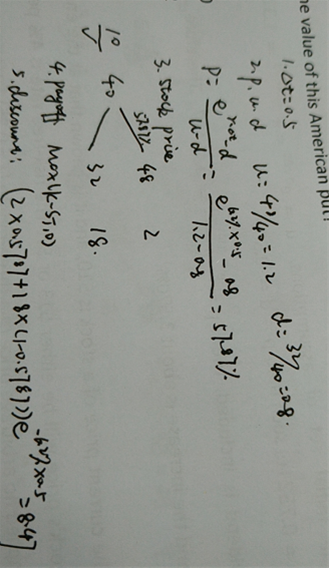 he value of this American put?
1. Δt=0.5
2. p, u, d  u=48/40=1.2  d=32/40=0.8.
p= (e^{rΔt}-d)/(u-d) = (e^{6%×0.5}-0.8)/(1.2-0.8) =57.87%
3. stock price
10  57.87%  48  2
40
32  18.
4. payoff Max(k-S_T,0)
5. discount: (2×0.5787+18×(1-0.5787))e^{-6%×0.5}=8.47